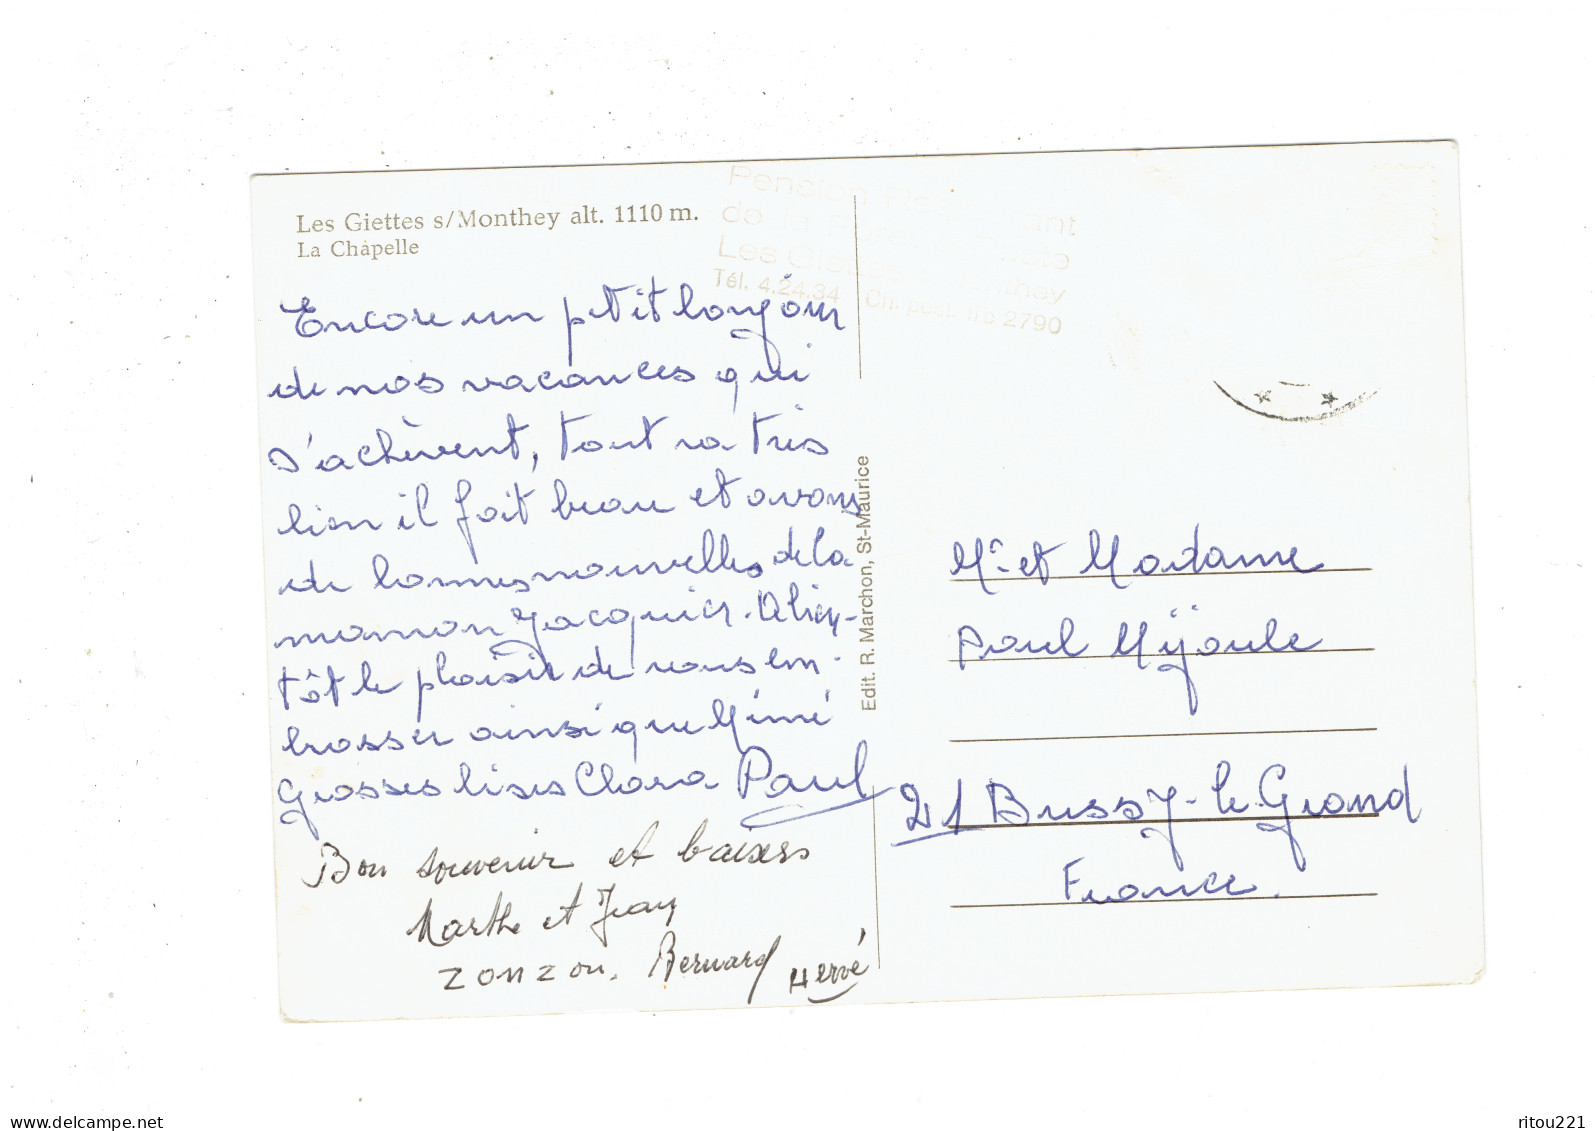 Les Giettes s/Monthey alt. 1110 m.
La Chapelle
Pension
de la
Les Giettes Monthey
Tél. 4.24.34 Ch. post. IIb 2790
Encore un petit bonjour
de nos vacances qui
s'achèvent, tout va très
bien il fait beau et avons
de bonnes nouvelles de la
maman Jacquier. A bien-
tôt le plaisir de vous em-
brasser ainsi que Mimé
Grosses bises Clara Paul
Bon souvenir et baisers
Marthe et Jean
zonzon. Bernard Hervé
Edit. R. Marchon, St-Maurice
Mr et Madame
Paul Mijoule
21 Bussy-le-Grand
France.
delcampe.net
ritou221